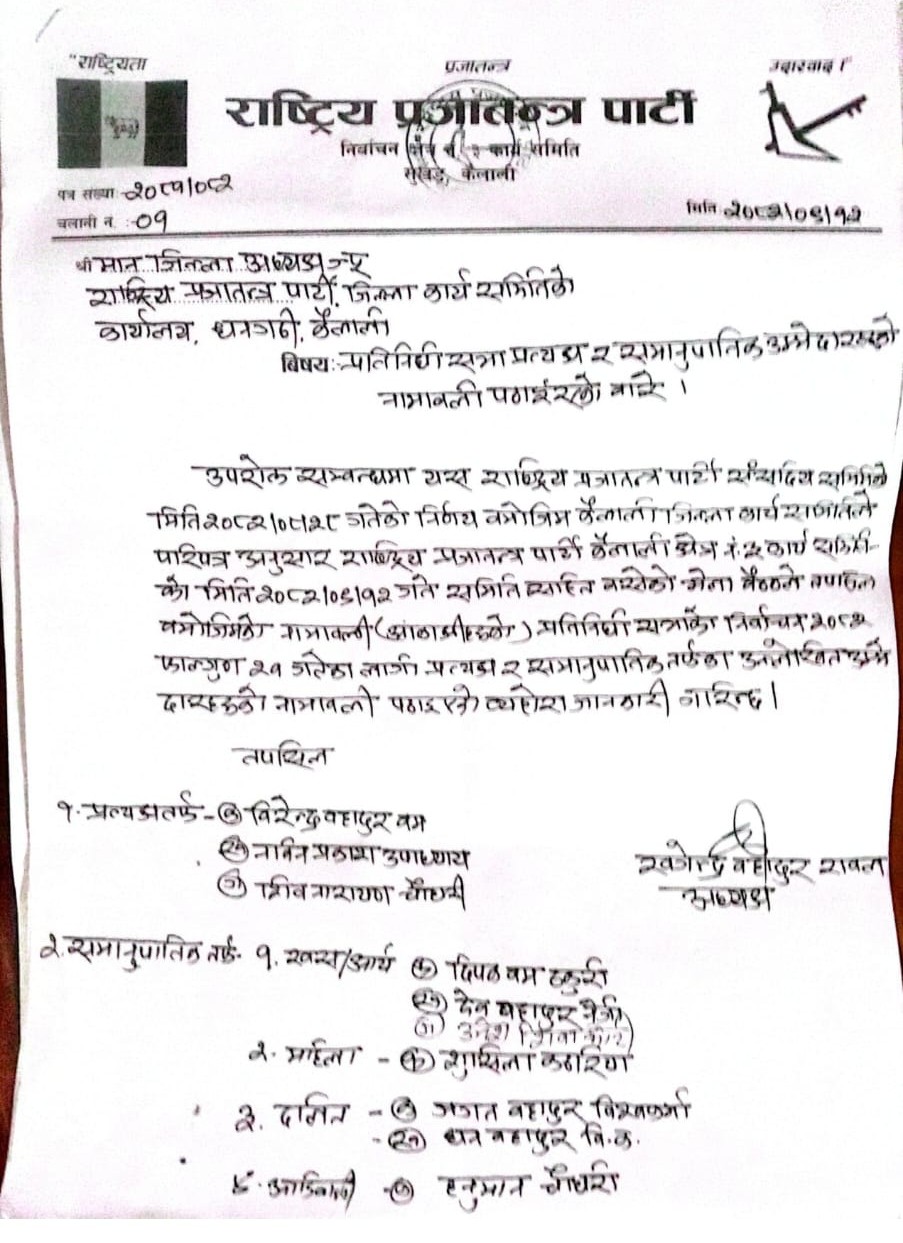 "राष्ट्रियता प्रजातन्त्र उदारवाद ।"
राष्ट्रिय प्रजातन्त्र पार्टी
निर्वाचन क्षेत्र नं. २ कार्य समिति
सुखड, कैलाली
पत्र संख्या: २०८१/०८२
चलानी नं. :- ०१
मिति: २०८२/०९/१२
श्री मान जिल्ला अध्यक्ष ज्यू
राष्ट्रिय प्रजातन्त्र पार्टी, जिल्ला कार्य समितिको
कार्यालय, धनगढी, कैलाली
बिषय:- प्रतिनिधी सभा प्रत्यक्ष र समानुपातिक उम्मेदारहरुको
नामावली पठाईएको बारे ।
उपरोक्त सम्वन्धमा यस राष्ट्रिय प्रजातन्त्र पार्टी संसदिय समितिले
मिति २०८२/०८/२८ गतेको निर्णय वमोजिम कैलाली जिल्ला कार्य समितिले
परिपत्र अनुसार राष्ट्रिय प्रजातन्त्र पार्टी कैलाली क्षेत्र नं. २ कार्य समिती-
को मिति २०८२/०९/१२ गते समिति सहित वसेको भेला बैठकले तपसिल
वमोजिमको नामावली प्रतिनिधी सभाको निर्वाचन २०८२
फाल्गुण २१ गतेका लागी प्रत्यक्ष र समानुपातिक तर्फका उल्लेखित उम्मे
दारहरुको नामावली पठाइएको व्यहोरा जानकारी गरिन्छ ।
तपसिल
१. प्रत्यक्ष तर्फ - (क) विरेन्द्र वहादुर वम
(ख) नविन प्रकाश उपाध्याय
(ग) शिव नारायण चौधरी
खगेन्द्र वहादुर रावल
अध्यक्ष
२. समानुपातिक तर्फ- १. खस/आर्य (क) दिपक वम ठकुरी
(ख) देव वहादुर
(ग)
२. महिला - (क) शुसिला कठरिया
३. दलित - (क) जगत वहादुर विश्वकर्मा
- (ख) धन वहादुर वि.क.
४. आदिवासी - (क) हनुमान चौधरी